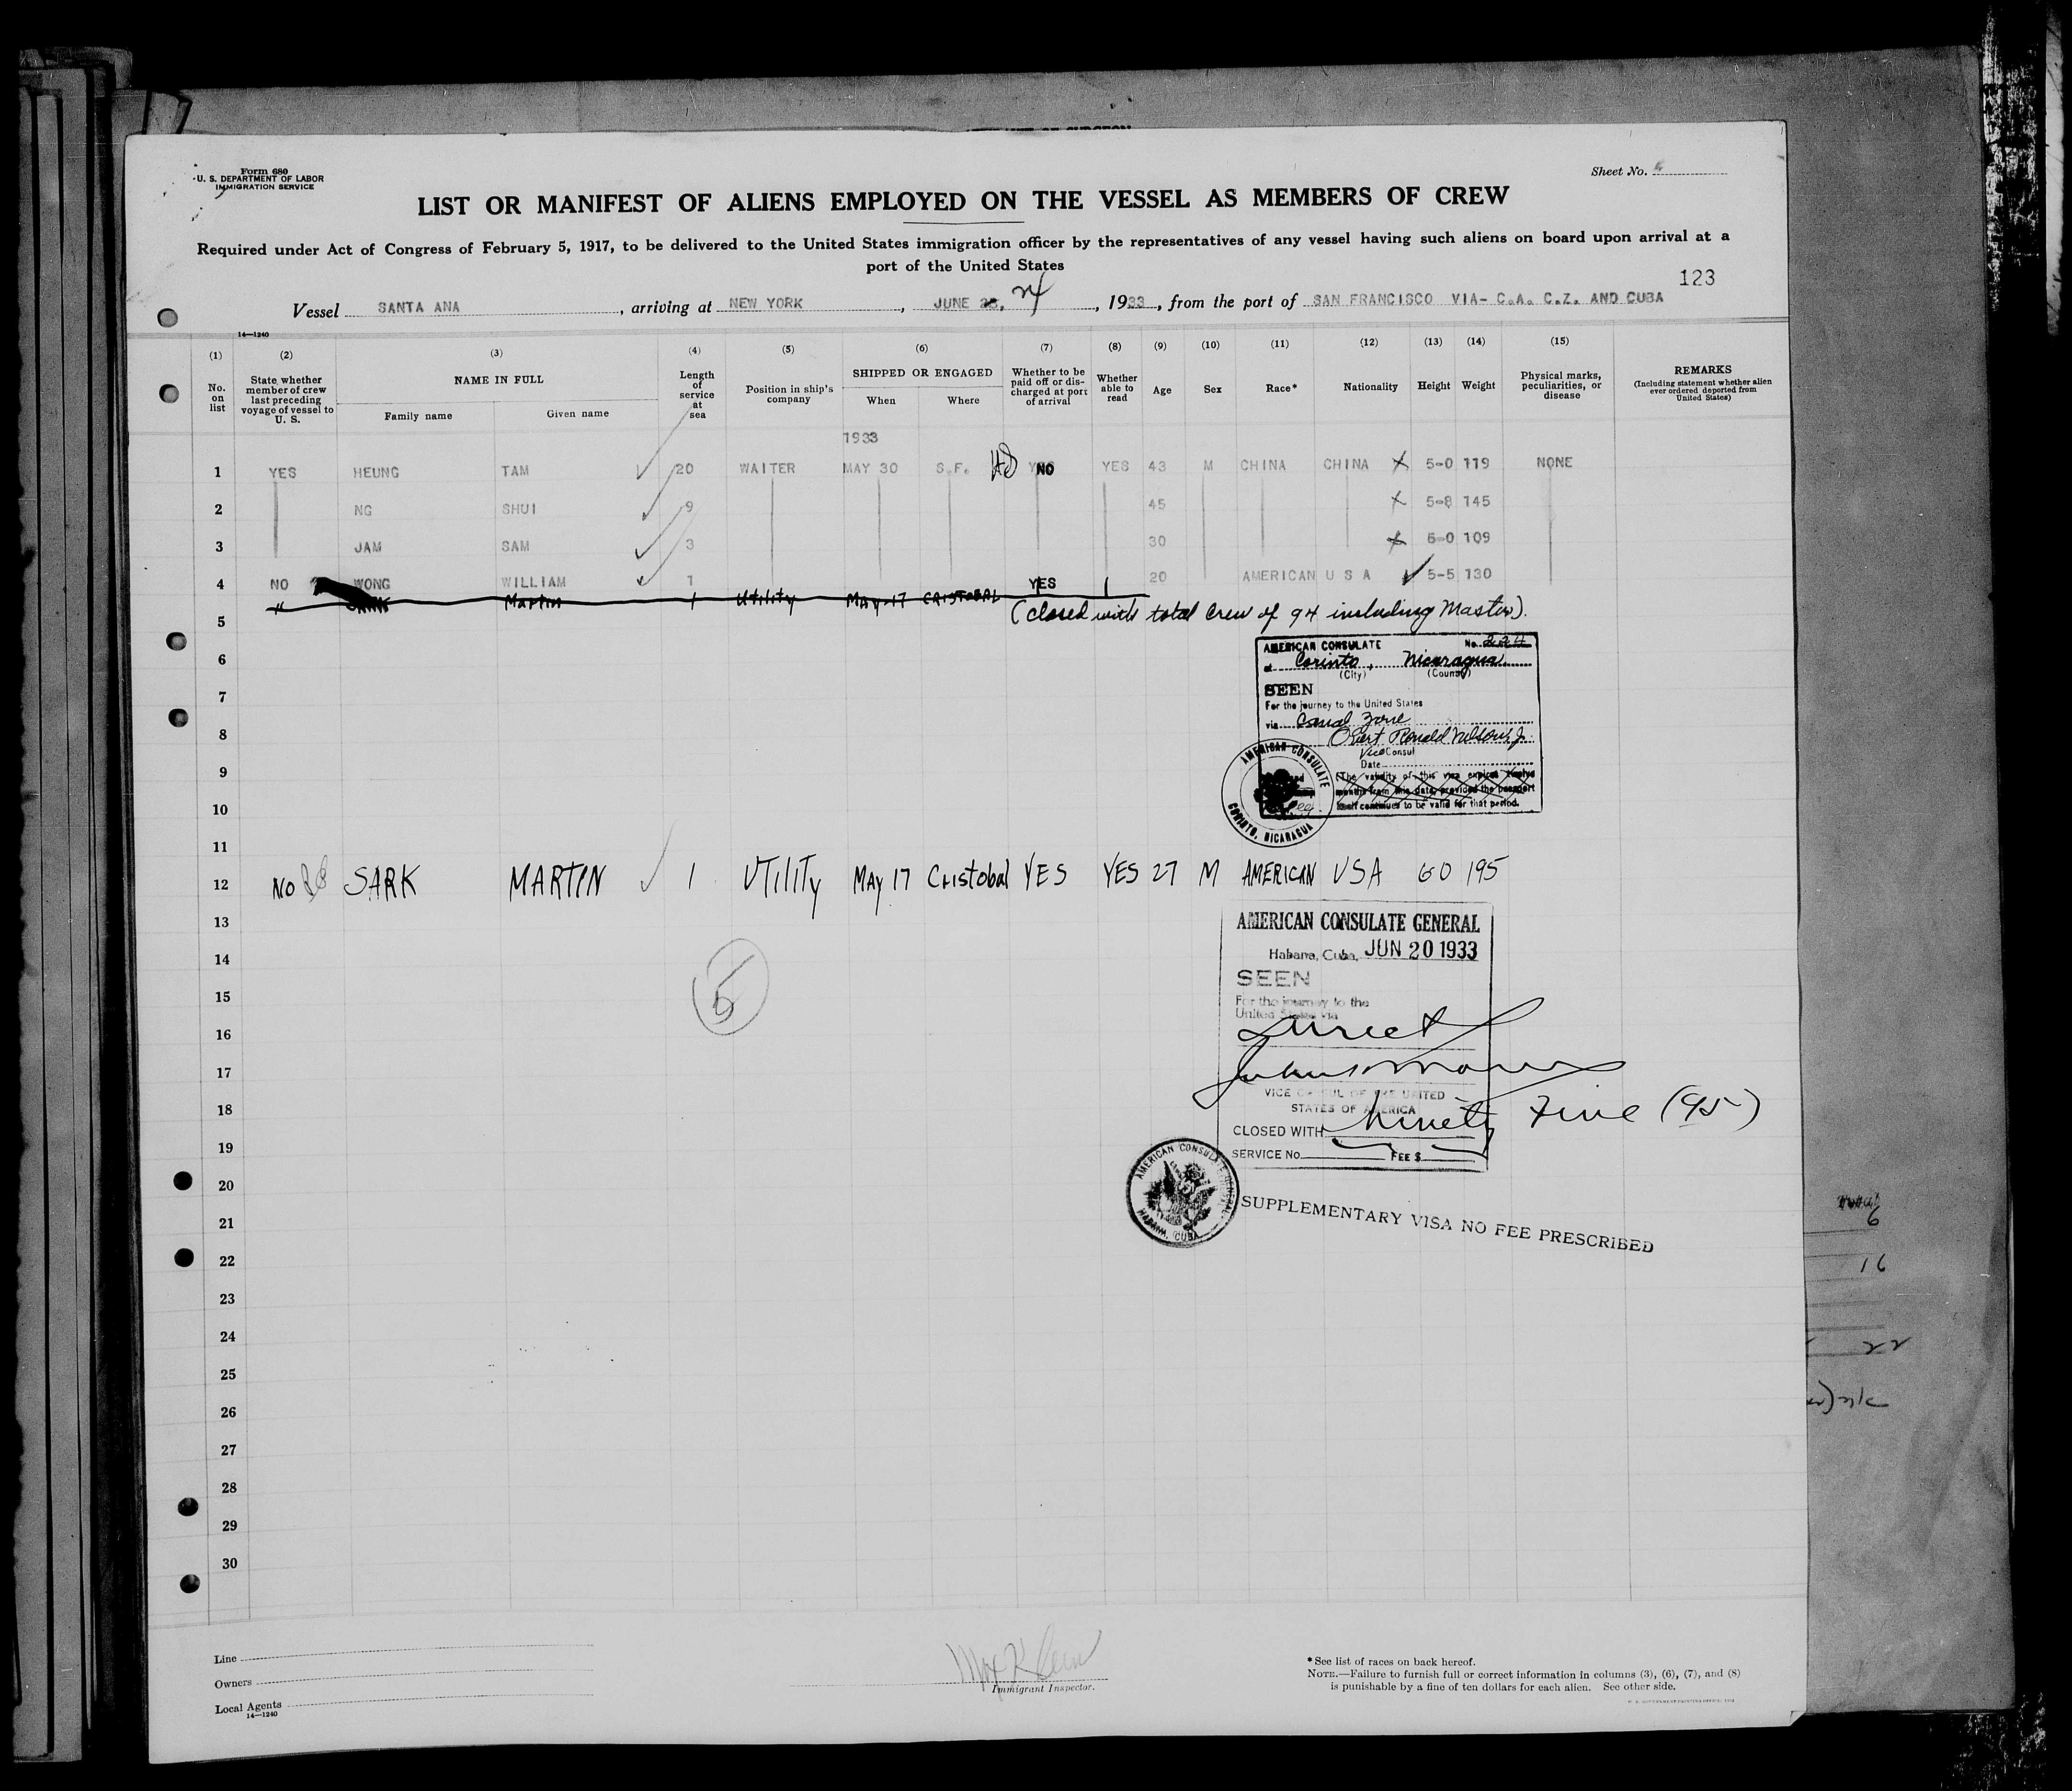 Form 680
U. S. DEPARTMENT OF LABOR
IMMIGRATION SERVICE
Sheet No.
LIST OR MANIFEST OF ALIENS EMPLOYED ON THE VESSEL AS MEMBERS OF CREW
Required under Act of Congress of February 5, 1917, to be delivered to the United States immigration officer by the representatives of any vessel having such aliens on board upon arrival at a
port of the United States
123
Vessel SANTA ANA, arriving at NEW YORK, JUNE 24, 1933, from the port of SAN FRANCISCO VIA- C.A. C.Z. AND CUBA
14—1240
(1) (2) (3) (4) (5) (6) (7) (8) (9) (10) (11) (12) (13) (14) (15)
No. on list
State whether member of crew last preceding voyage of vessel to U. S.
NAME IN FULL
Family name
Given name
Length of service at sea
Position in ship's company
SHIPPED OR ENGAGED
When
Where
Whether to be paid off or discharged at port of arrival
Whether able to read
Age
Sex
Race*
Nationality
Height
Weight
Physical marks, peculiarities, or disease
REMARKS
(Including statement whether alien ever ordered deported from United States)
1933
1 YES HEUNG TAM 20 WAITER MAY 30 S.F. NO YES 43 M CHINA CHINA 5-0 119 NONE
2 NG SHUI 9 45 5-8 145
3 JAM SAM 3 30 5-0 109
4 NO WONG WILLIAM 1 YES 20 AMERICAN U S A 5-5 130
" Martin 1 Utility May-17 CRISTOBAL
5 (Closed with total crew of 94 including Master).
6
7
8
9
10
11
AMERICAN CONSULATE No. 224
at Corinto, Nicaragua
(City) (County)
SEEN
For the journey to the United States
via Canal Zone
Vice Consul
Date
(The validity of this visa expires twelve
months from this date, provided the passport
itself continues to be valid for that period.
AMERICAN CONSULATE
CORINTO, NICARAGUA
12 NO SARK MARTIN 1 UTILITY MAY 17 Cristobal YES YES 27 M AMERICAN USA 60 195
13
14
15
16
17
18
19
20
21
22
23
24
25
26
27
28
29
30
5
AMERICAN CONSULATE GENERAL
Habana, Cuba, JUN 20 1933
SEEN
For the journey to the
United States via
Direct
VICE CONSUL OF THE UNITED
STATES OF AMERICA
CLOSED WITH Ninety Five (95)
SERVICE No. FEE $
AMERICAN CONSULATE GENERAL
HABANA, CUBA
SUPPLEMENTARY VISA NO FEE PRESCRIBED
6
16
22
Line
Owners
Local Agents
14—1240
Immigrant Inspector.
* See list of races on back hereof.
NOTE.—Failure to furnish full or correct information in columns (3), (6), (7), and (8)
is punishable by a fine of ten dollars for each alien. See other side.